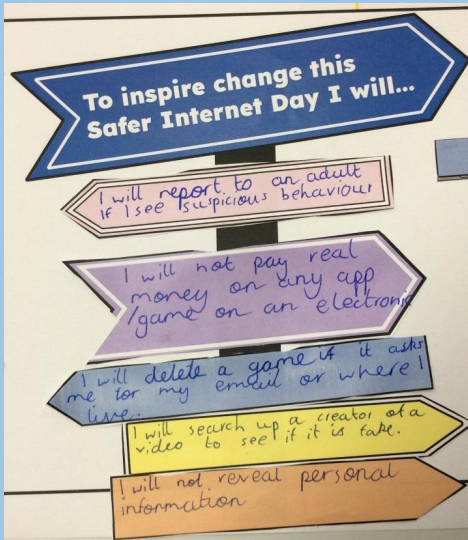 To inspire change this
Safer Internet Day I will...
I will report to an adult
if I see suspicious behaviour
I will not pay real
money on any app
/game on an electronic
I will delete a game if it asks
me for my email or where I
live.
I will search up a creator of a
video to see if it is fake.
I will not reveal personal
information